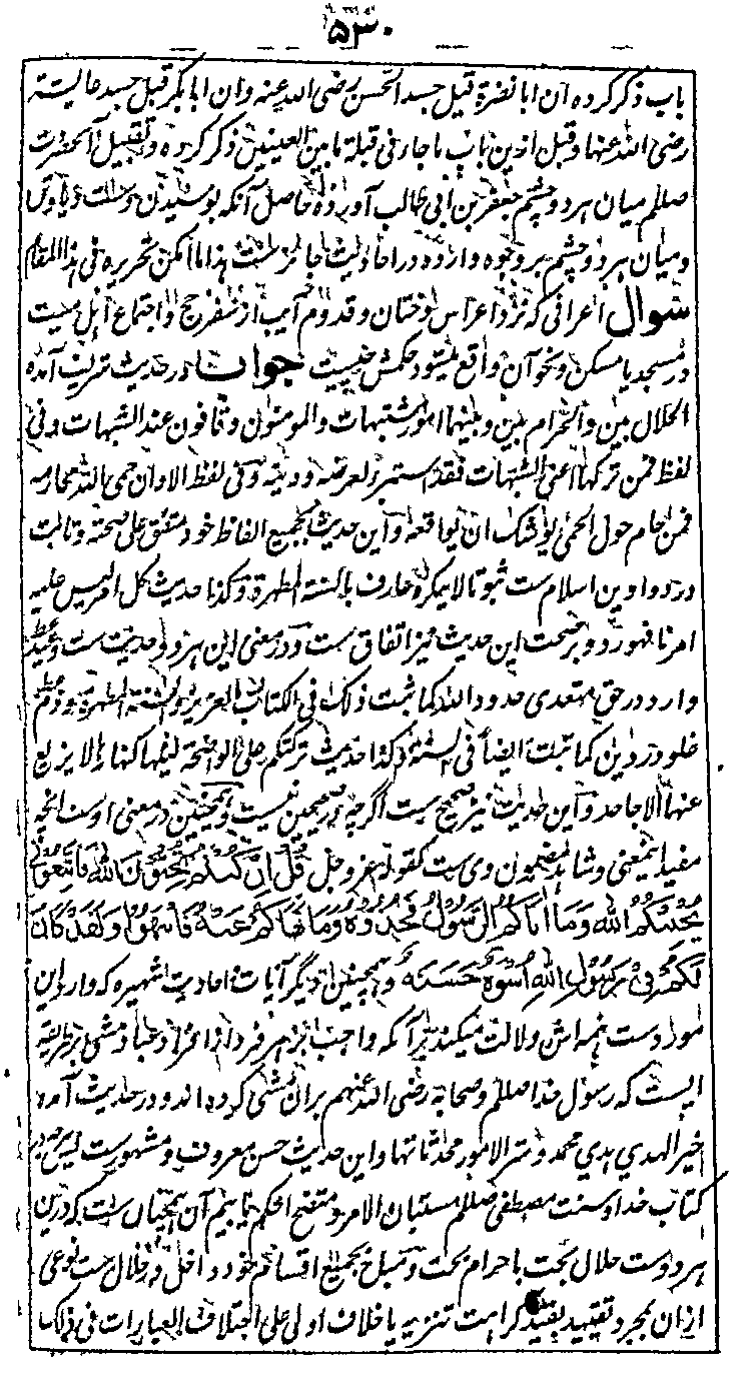 ۵۳۰
باب ذکر کرده ان ابا نضرة قبل جسد الحسن رضی الله عنه وان ابا بکر قبل جسد عائیشة
رضی الله عنها و قبل ازین باب ما جاء فی قبلة ما بین العینین ذکر کرده و تقبیل آنحضرت
صللم میان هر دو چشم جعفر بن ابی طالب آورده حاصل آنکه بوسیدن دست و پا و تن
و میان هر دو چشم بر وجوه وارده در احادیث جائز ست هذا ما امکن تحریره فی هذا المقام
سوال اعرافی که نزد اعراس و ختان و قدوم آیب از سفر حج و اجتماع اهل میت
در مسجد یا مسکن و نحو آن واقع میشود حکمش چیست جواب در حدیث شریف آمده
الحلال بین والحرام بین وبینهما امور مشتبهات والمومنون وقافون عند الشبهات وفی
لفظ فمن ترکها اعنی الشبهات فقد استبرء لعرضه ودینه وفی لفظ الا وان حمی الله محارمه
فمن حام حول الحمی یوشک ان یواقعه و این حدیث بجمیع الفاظ خود متفق علی صحته و ثابت
در دواوین اسلام ست ثبوتا لا ینکره عارف بالسنة المطهرة وکذا حدیث کل امر لیس علیه
امرنا فهو رد و بر صحت این حدیث نیز اتفاق ست و در معنی این هر دو حدیث ست وعید
وارد در حق متعدی حدود الله کما ثبت ذلک فی الکتاب العزیز والسنة المطهرة و ذم
غلو در دین کما ثبت ایضاً فی السنة وکذا حدیث ترکتکم علی الواضحة لیلها کنهارها لا یزیغ
عنها الا جاحد و این حدیث نیز صحیح ست اگرچه در صحیحین نیست و همچنین در معنی اوست انچه
مفید اینمعنی و شاهد مضمون وی ست کقوله عز وجل قُلْ اِنْ کُنْتُمْ تُحِبُّوْنَ اللهَ فَاتَّبِعُوْنِیْ
یُحْبِبْکُمُ اللهُ وَمَا اٰتَاکُمُ الرَّسُوْلُ فَخُذُوْهُ وَمَا نَهَاکُمْ عَنْهُ فَانْتَهُوْا وَلَقَدْ کَانَ
لَکُمْ فِیْ رَسُوْلِ اللهِ اُسْوَةٌ حَسَنَةٌ و همچنین دیگر آیات و احادیث شهیره که وارد این
مورد ست همه اش دلالت میکند بر آنکه واجب بر هر فرد از افراد عباد مشی بر طریقه
ایست که رسول خدا صللم و صحابه رضی الله عنهم بران مشی کرده اند و در حدیث آمده
خیر الهدی هدی محمد وشر الامور محدثاتها و این حدیث حسن معروف و مشهورست پس هرچه در
کتاب خدا و سنت مصطفی صللم مستبان الامر و متضح الحکم یابیم آن همچنان ست که درین
هر دوست حلال بحت یا حرام بحت و مباح بجمیع اقسام خود داخل در حلال ست نوعی
ازان بمجرد تقیید بقید کراهت تنزیه یا خلاف اولی علی اختلاف العبارات فی ذلک